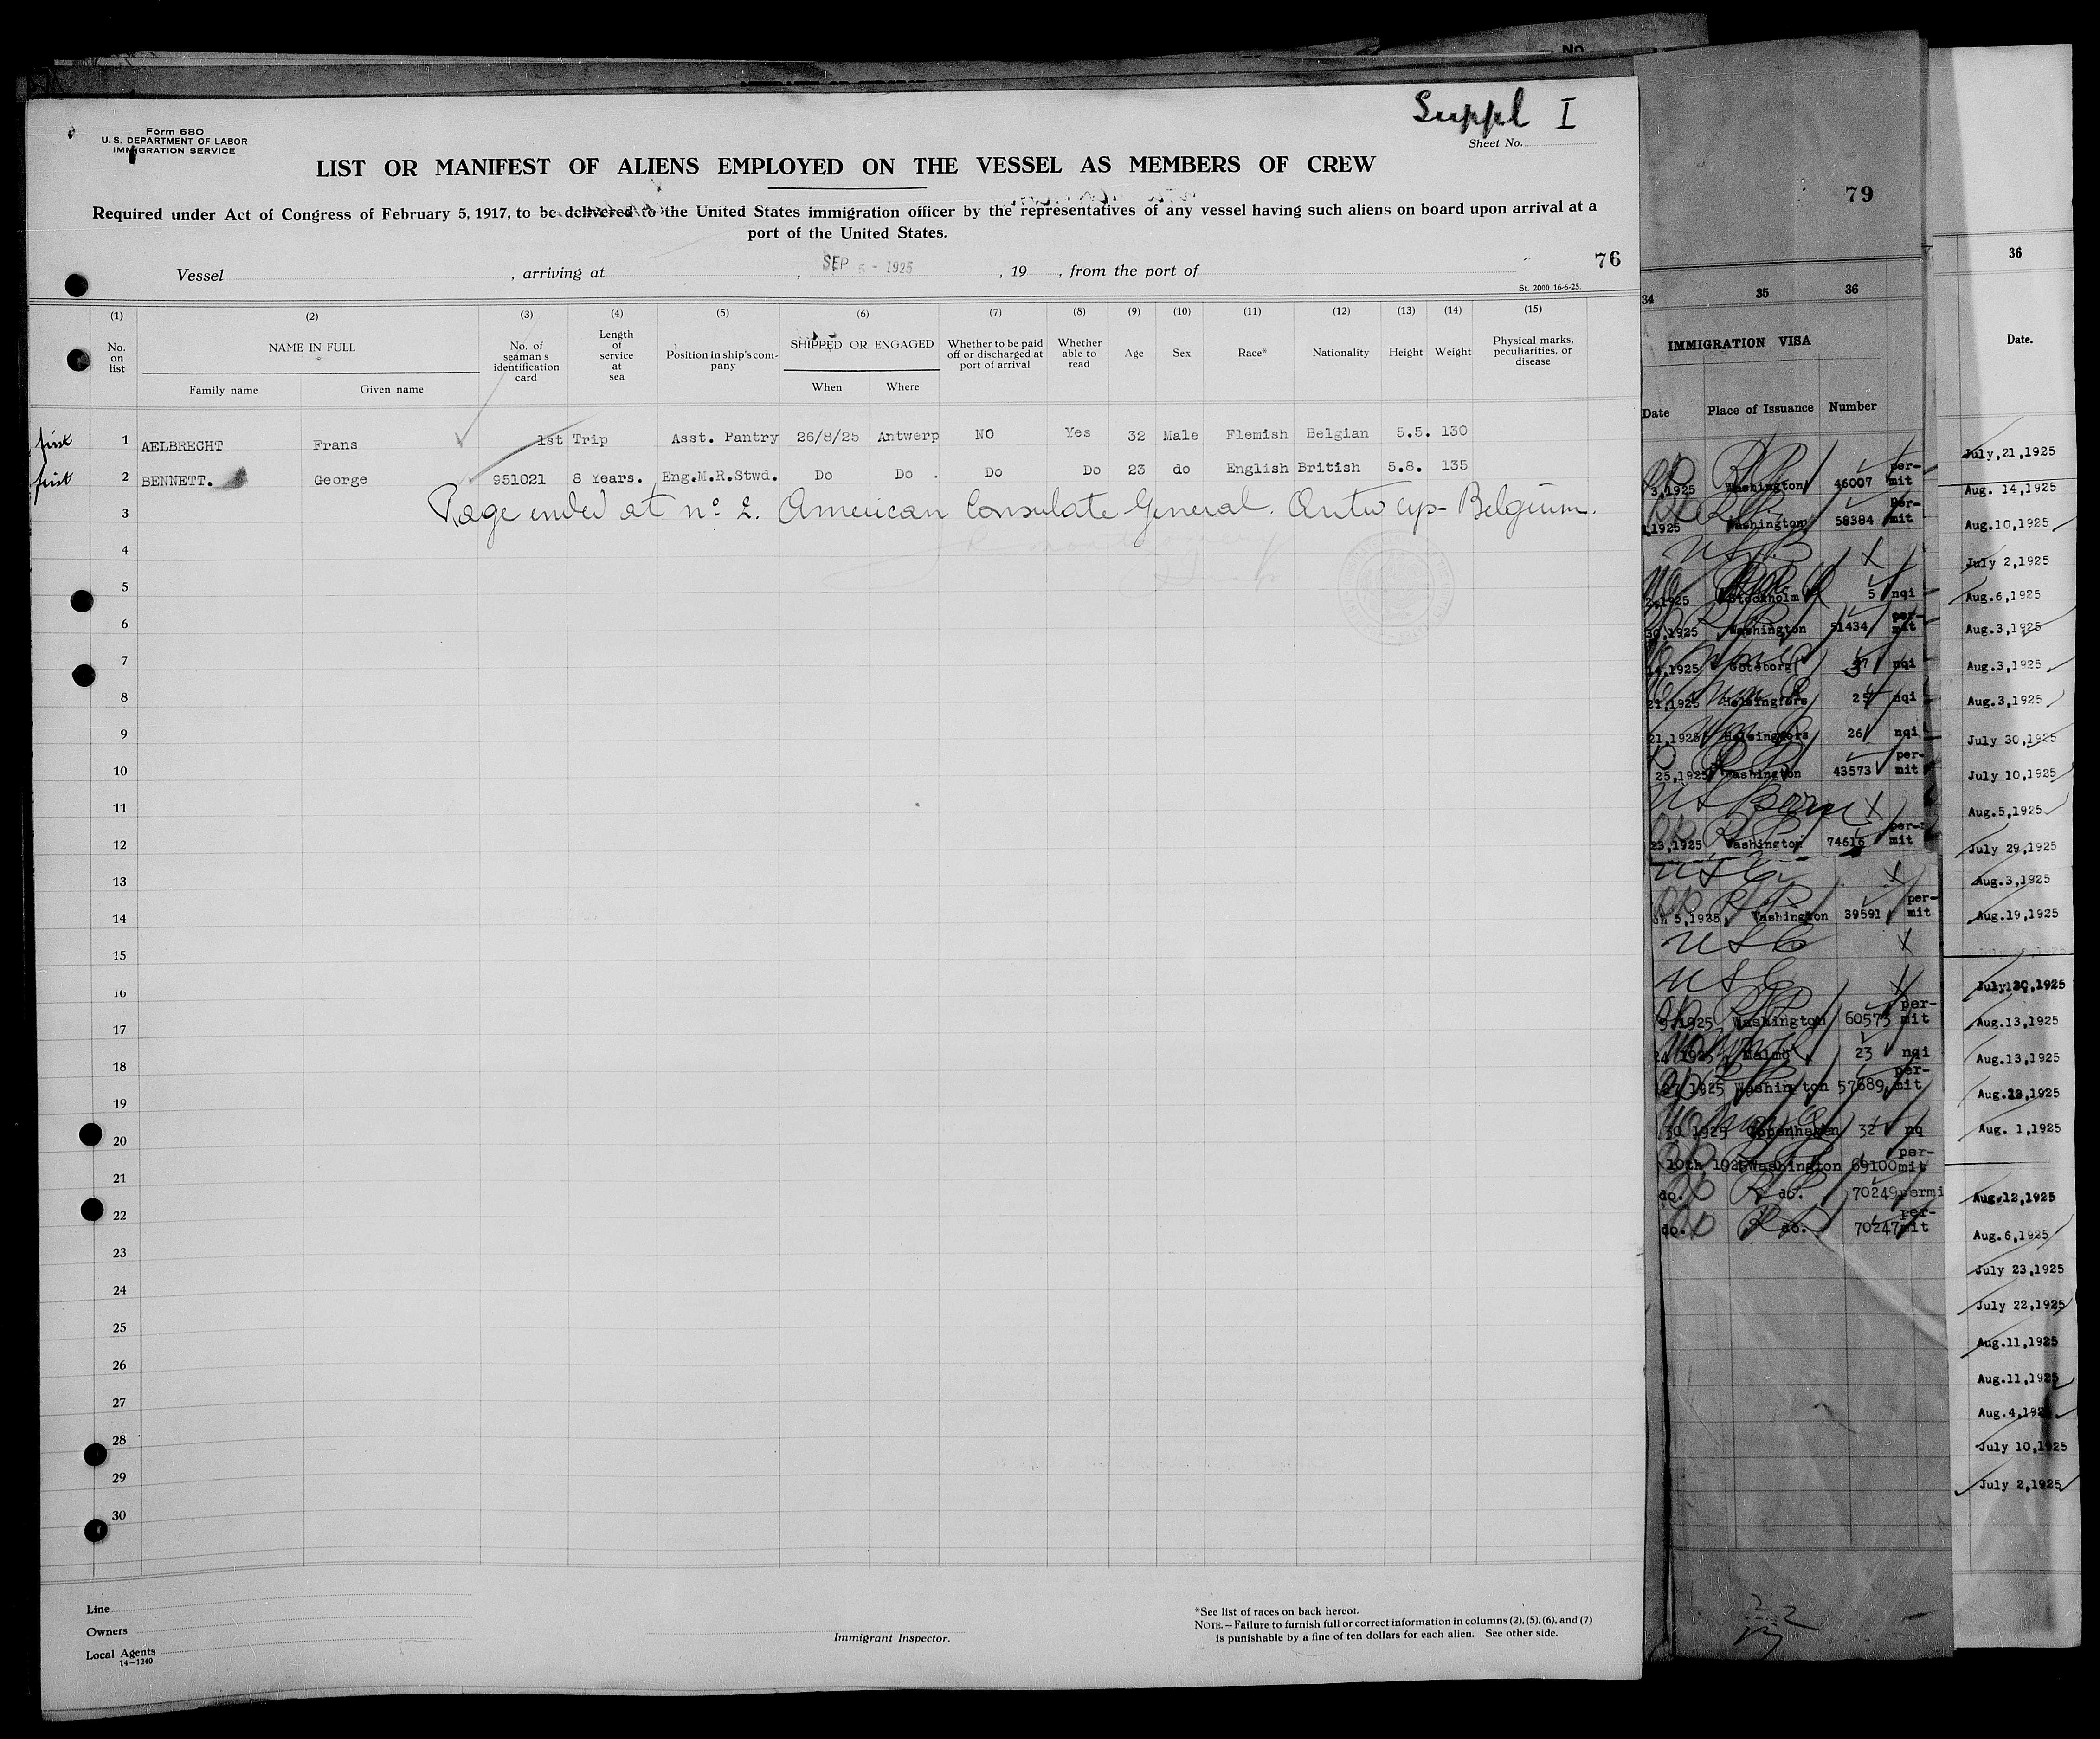 No
Suppl I
Form 680
U. S. DEPARTMENT OF LABOR
IMMIGRATION SERVICE
Sheet No.
LIST OR MANIFEST OF ALIENS EMPLOYED ON THE VESSEL AS MEMBERS OF CREW
Required under Act of Congress of February 5, 1917, to be delivered to the United States immigration officer by the representatives of any vessel having such aliens on board upon arrival at a
port of the United States.
76
Vessel , arriving at , SEP 5 - 1925 , 19 , from the port of
St. 2000 16-6-25.
(1) (2) (3) (4) (5) (6) (7) (8) (9) (10) (11) (12) (13) (14) (15)
No. on list NAME IN FULL No. of seaman s identification card Length of service at sea Position in ship's company SHIPPED OR ENGAGED Whether to be paid off or discharged at port of arrival Whether able to read Age Sex Race* Nationality Height Weight Physical marks, peculiarities, or disease
Family name Given name When Where
first 1 AELBRECHT Frans 1st Trip Asst. Pantry 26/8/25 Antwerp NO Yes 32 Male Flemish Belgian 5.5. 130
first 2 BENNETT. George 951021 8 Years. Eng.M.R.Stwd. Do Do . Do Do 23 do English British 5.8. 135
3 Page ended at no 2. American Consulate General. Antwerp- Belgium.
4
5
6
7
8
9
10
11
12
13
14
15
16
17
18
19
20
21
22
23
24
25
26
27
28
29
30
Line
Owners
Local Agents
14-1240
Immigrant Inspector.
*See list of races on back hereof.
NOTE.-Failure to furnish full or correct information in columns (2), (5), (6), and (7)
is punishable by a fine of ten dollars for each alien. See other side.
79
34 35 36
IMMIGRATION VISA
Date Place of Issuance Number
3,1925 Washington 46007 per-mit
1925 Washington 58384 per-mit
2,1925 Stockholm 5 nqi
30,1925 Washington 51434 per-mit
14,1925 Goteborg 37 nqi
21,1925 Helsingfors 25 nqi
21,1925 Helsingfors 26 nqi
25,1925 Washington 43573 per-mit
US Born X
23,1925 Washington 74616 per-mit
USC X
5,1925 Washington 39591 per-mit
USC X
USC X
9,1925 Washington 60573 per-mit
24,1925 Malmo 23 nqi
27,1925 Washington 57689 per-mit
30 1925 Copenhagen 32 nq
10th 1925 Washington 69100 per-mit
do. do. 70249 permi
do. do. 70247 per-mit
36
Date.
July,21,1925
Aug. 14,1925
Aug.10,1925
July 2,1925
Aug.6,1925
Aug.3,1925
Aug.3,1925
Aug.3,1925
July 30,1925
July 10,1925
Aug.5,1925
July 29,1925
Aug.3,1925
Aug.19,1925
July 30,1925
Aug.13,1925
Aug.13,1925
Aug. 1,1925
Aug.12,1925
Aug.6,1925
July 23,1925
July 22,1925
Aug.11,1925
Aug.11,1925
Aug.4,1925
July 10,1925
July 2,1925